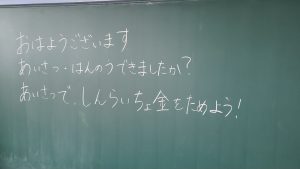 おはようございます
あいさつ・はんのうできましたか?
あいさつで、しんらいちょ金をためよう!